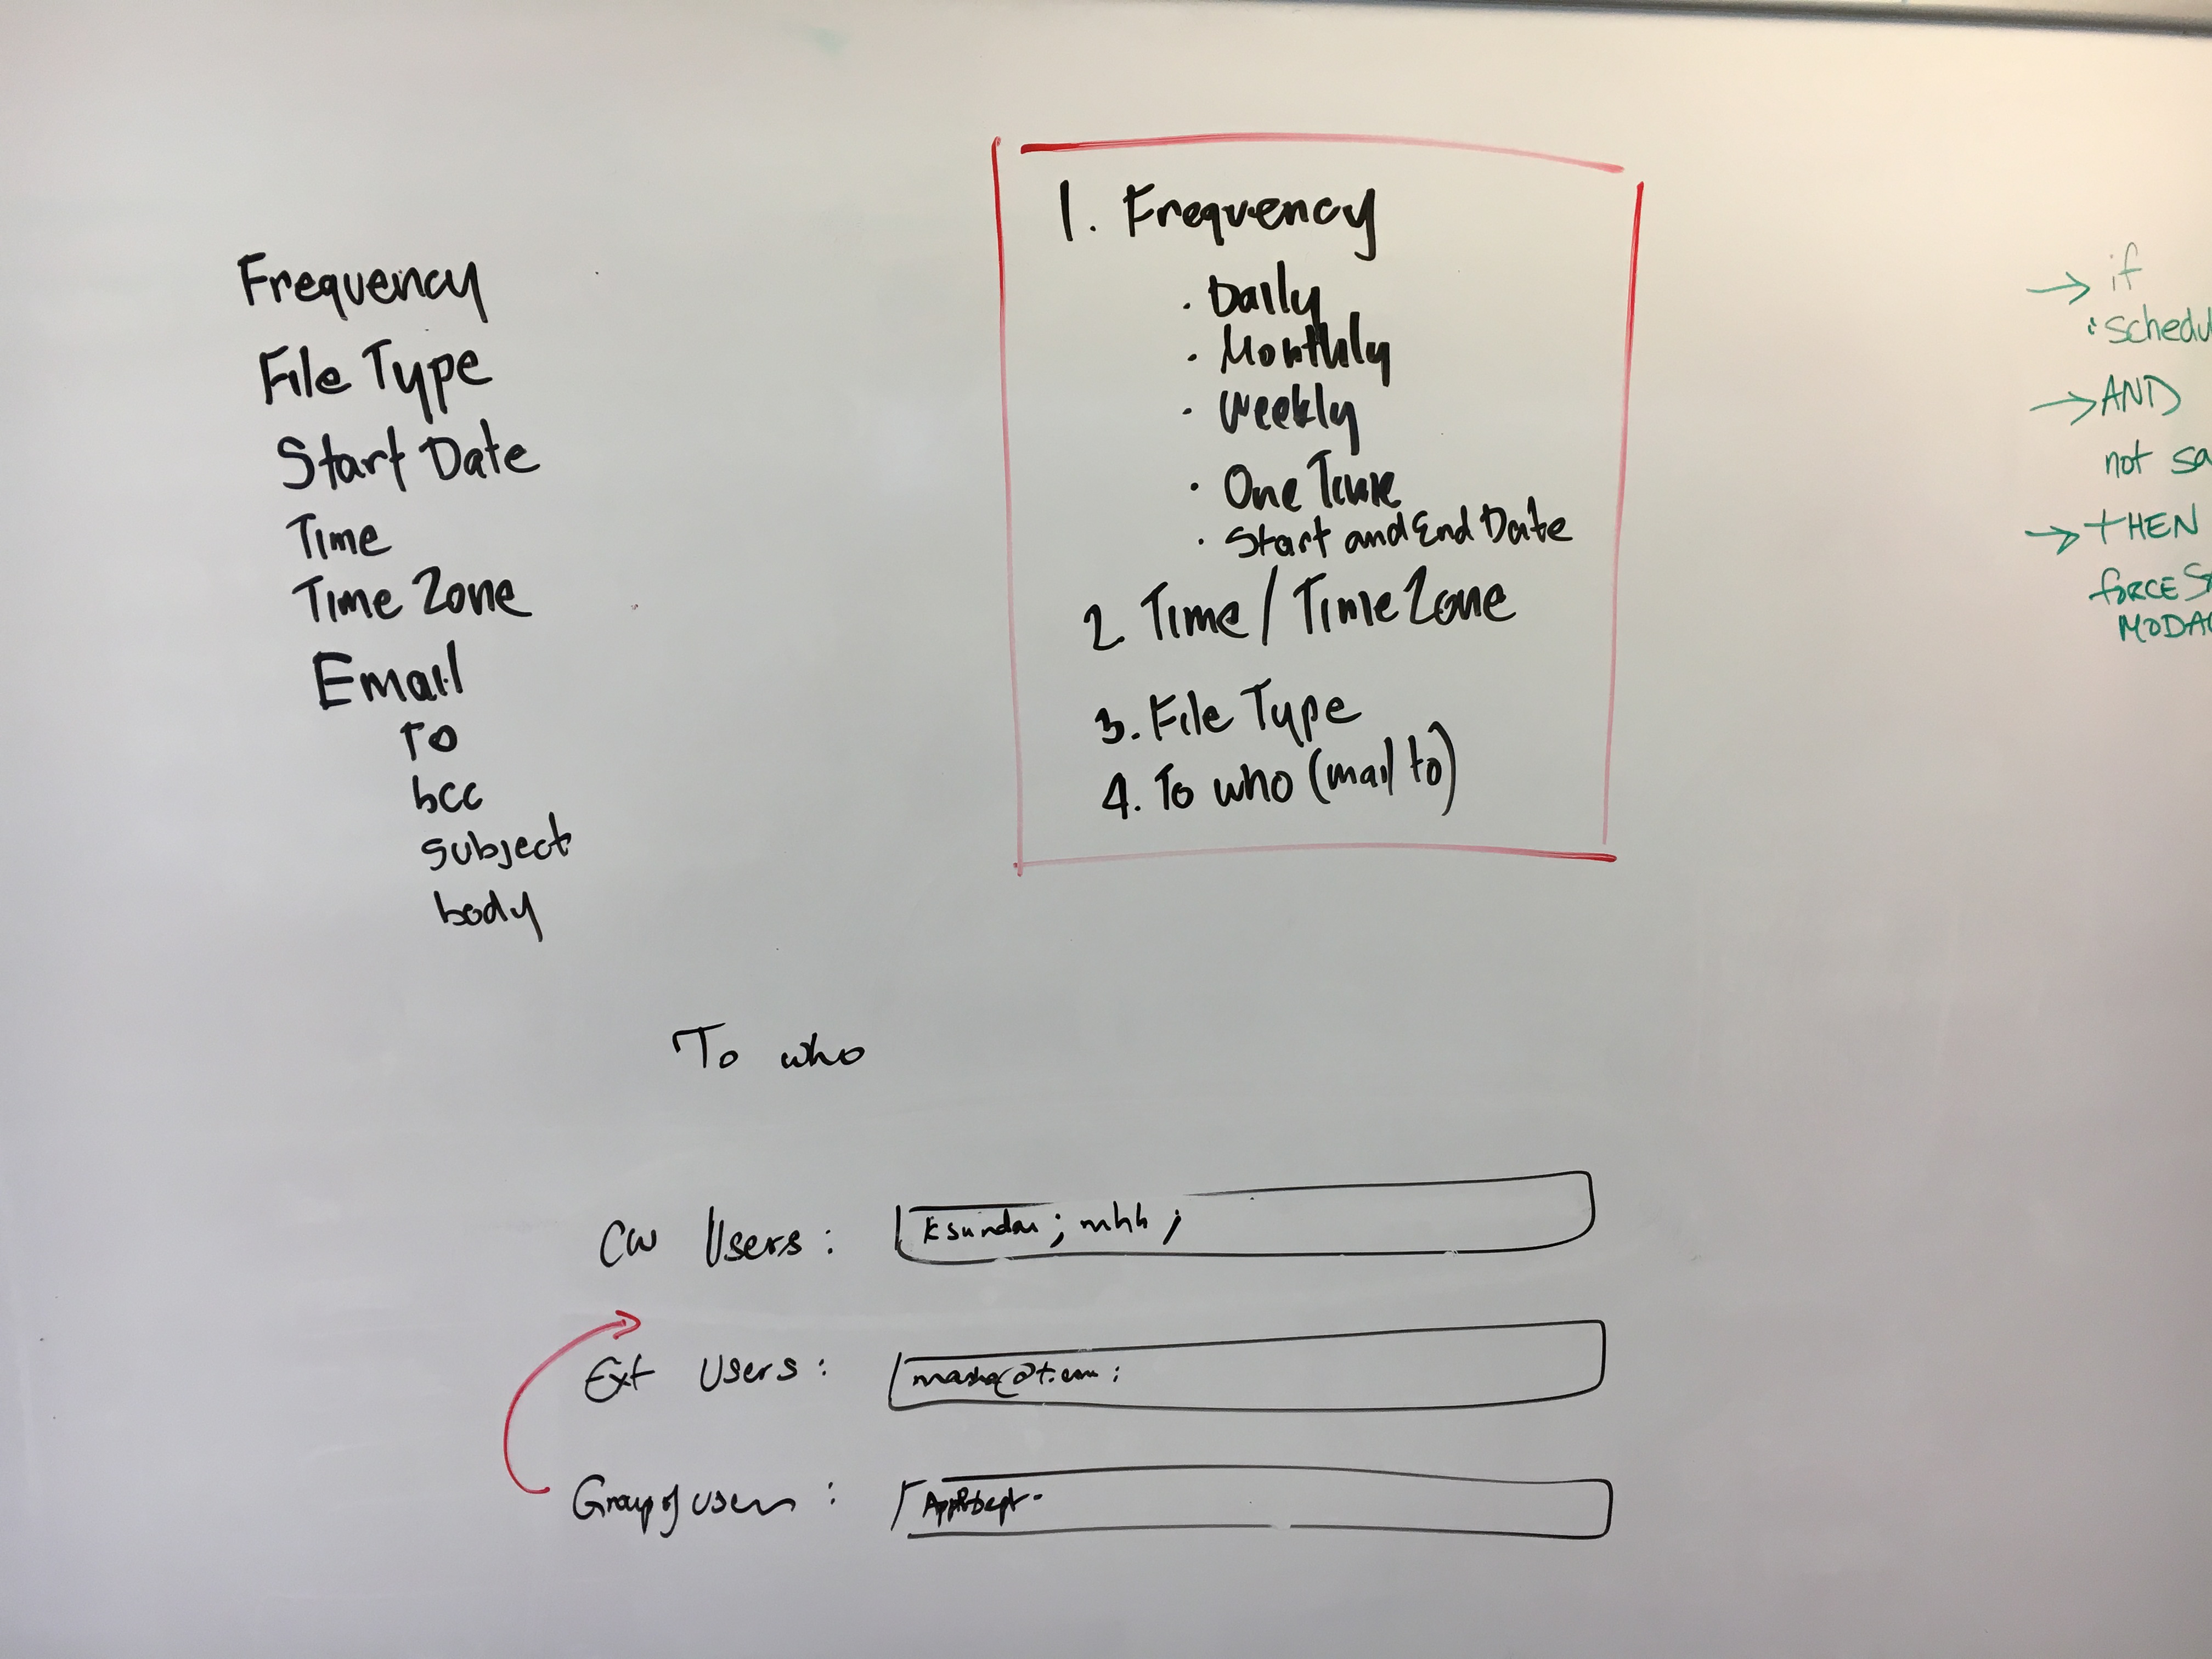 Frequency
File Type
Start Date
Time
Time Zone
Email
To
bcc
subject
body
1. Frequency
· Daily
· Monthly
· Weekly
· One Time
· Start and End Date
2 Time / Time Zone
3. File Type
4. To who (mail to)
→ if
: schedu
→ AND
not sa
→ THEN
FORCE
MODA
To who
CW Users : ksundar ; mhh ;
Ext Users :
Group of users :